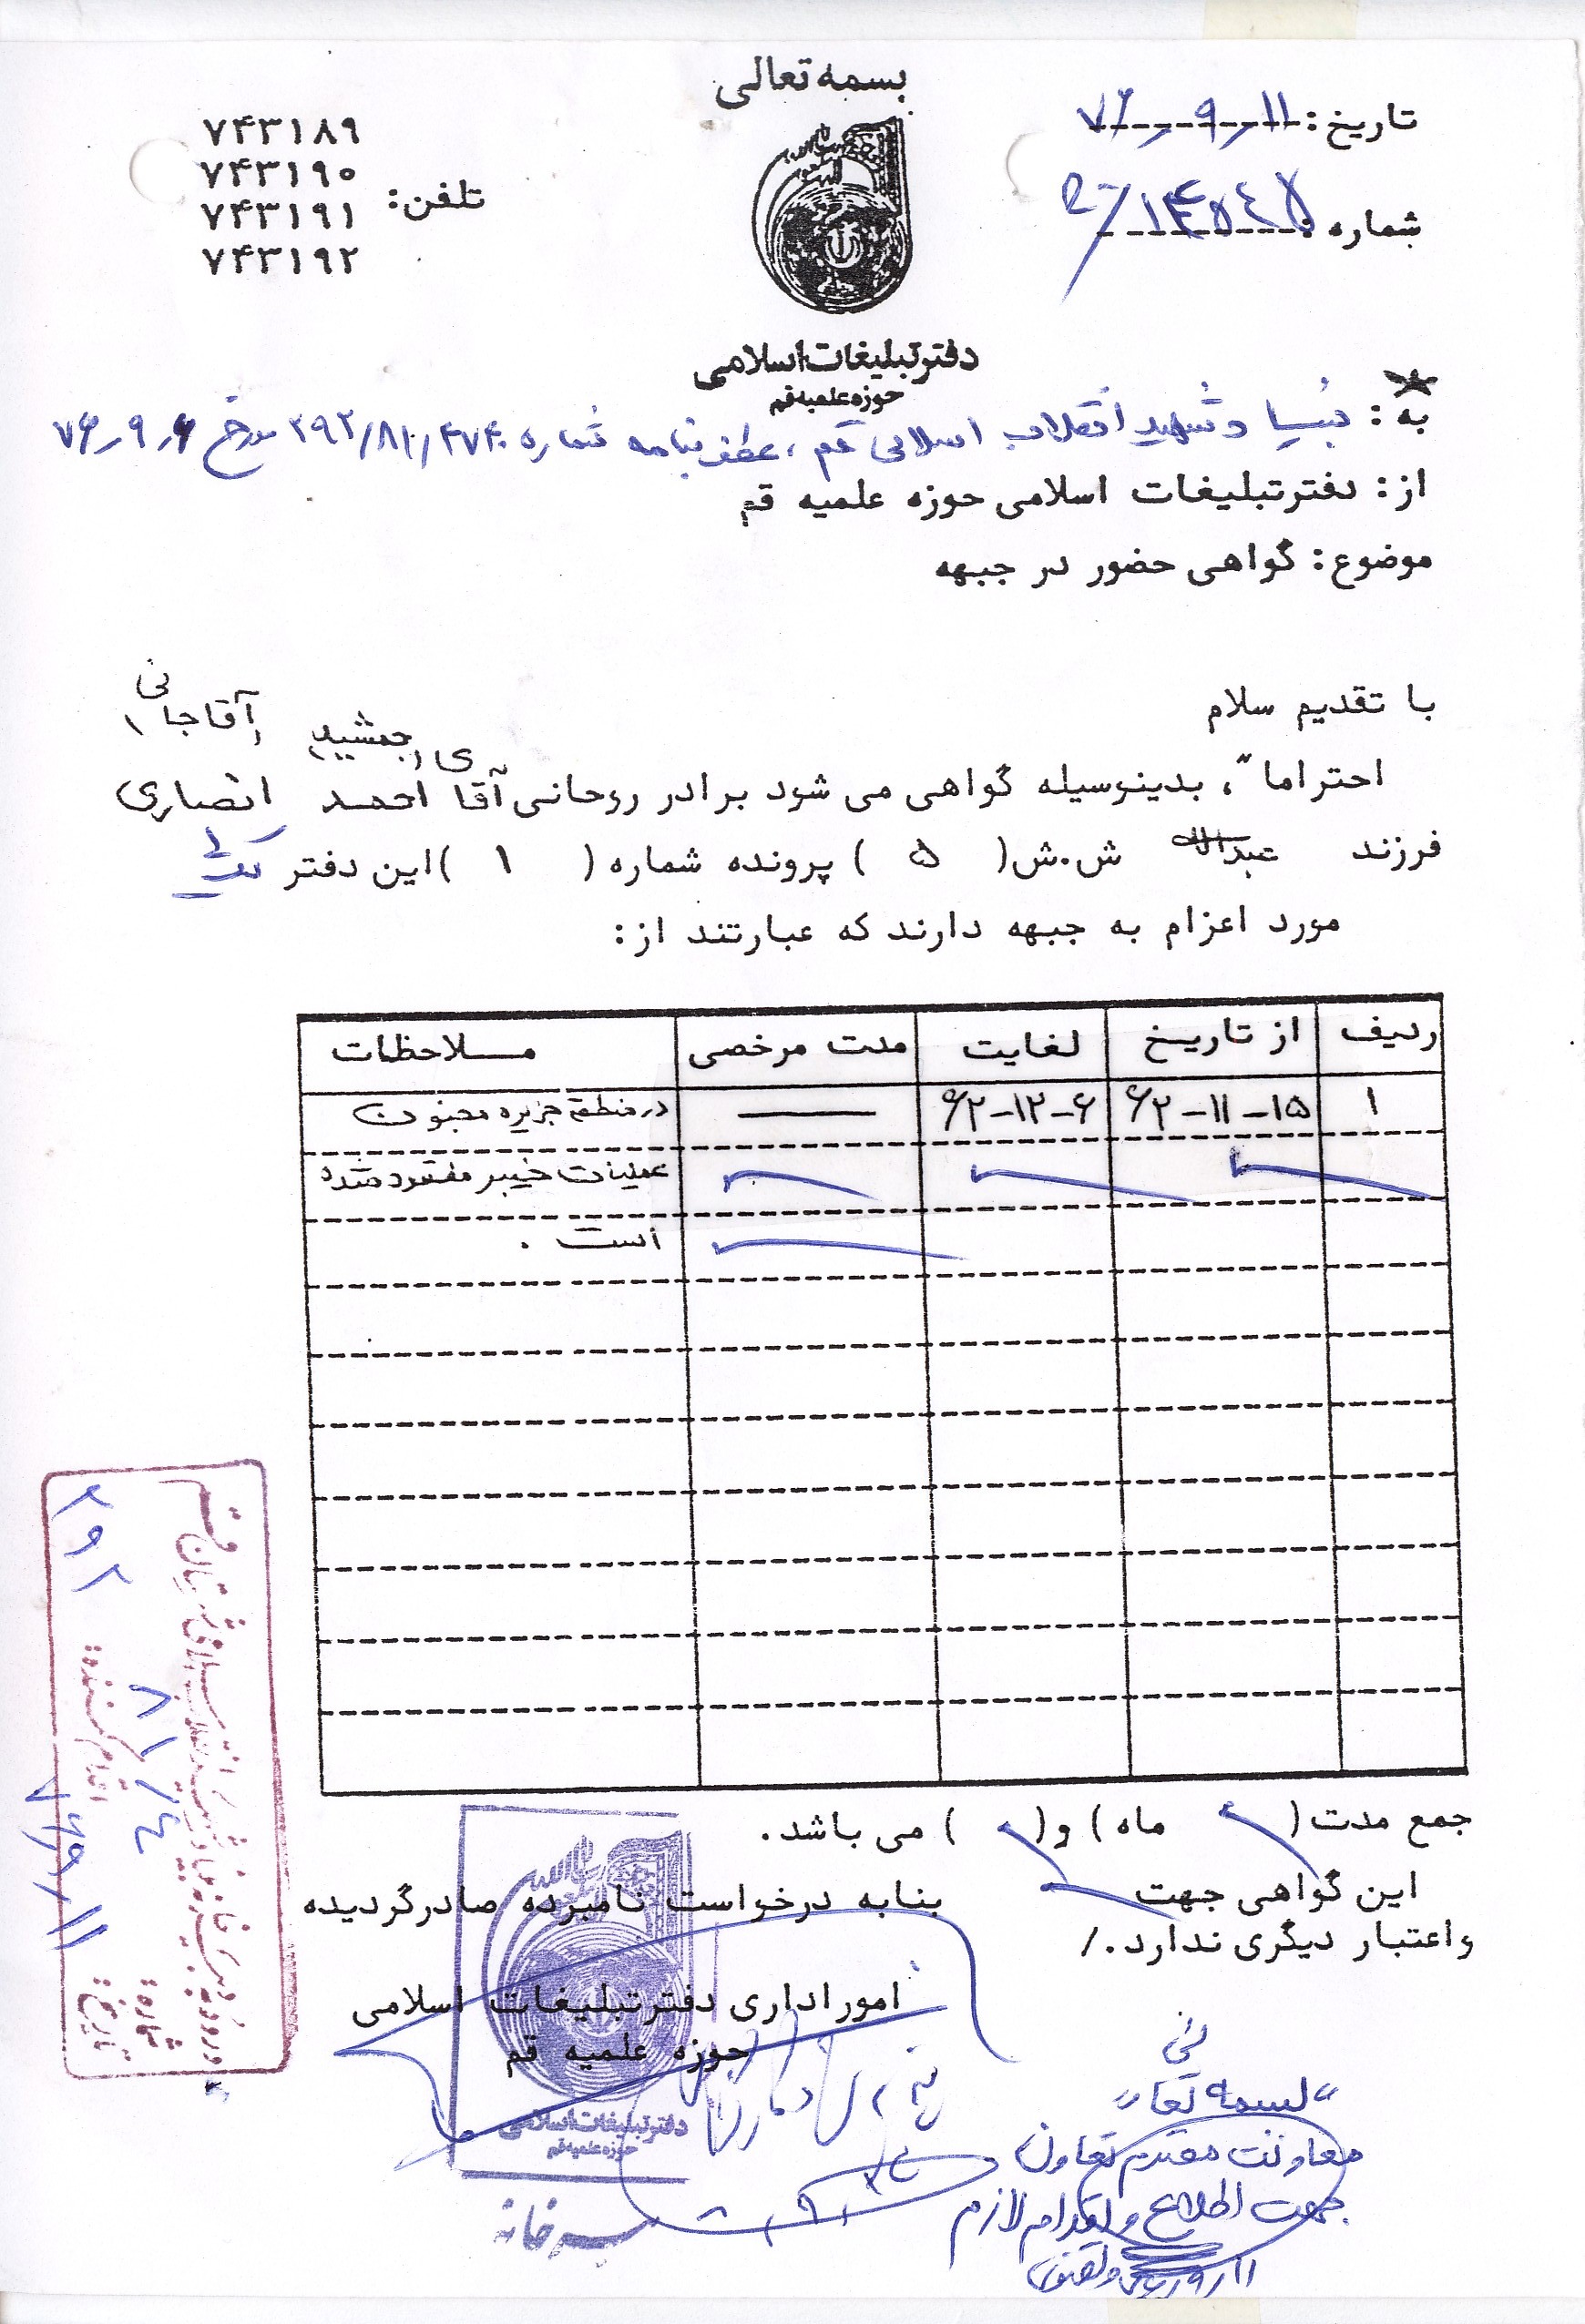 بسمه تعالی
تاریخ: ۷۶/۹/۱۱
شماره
تلفن:
۷۴۳۱۸۹
۷۴۳۱۹۰
۷۴۳۱۹۱
۷۴۳۱۹۲
دفتر تبلیغات اسلامی
حوزه علمیه قم
به: شهید انقلاب اسلامی قم، عطف بنامه شماره ۲۹۲/۸۱/۴۷۴۰ مورخ ۷۶/۹/۶
از: دفتر تبلیغات اسلامی حوزه علمیه قم
موضوع: گواهی حضور در جبهه
با تقدیم سلام
جمشید آقاجانی
احتراما"، بدینوسیله گواهی می شود برادر روحانی آقای احمد انصاری
فرزند عبدالله ش.ش( ۵ ) پرونده شماره ( ۱ )این دفتر یک
مورد اعزام به جبهه دارند که عبارتند از:
ردیف از تاریخ لغایت مدت مرخصی ملاحظات
۱ ۶۲-۱۱-۱۵ ۶۲-۱۲-۶ در منطقه جزیره مجنون
عملیات خیبر مفقود شده
است .
جمع مدت( ماه) و( ) می باشد.
این گواهی جهت بنابه درخواست نامبرده صادرگردیده
واعتبار دیگری ندارد./
امور اداری دفتر تبلیغات اسلامی
حوزه علمیه قم
دفتر تبلیغات اسلامی
حوزه علمیه قم
"بسمه تعالی"
معاونت محترم تعاون
جهت اطلاع و اقدام لازم
شماره:
تاریخ:
اقدام کننده:
۲۹۲
۷۶/۹/۱۱